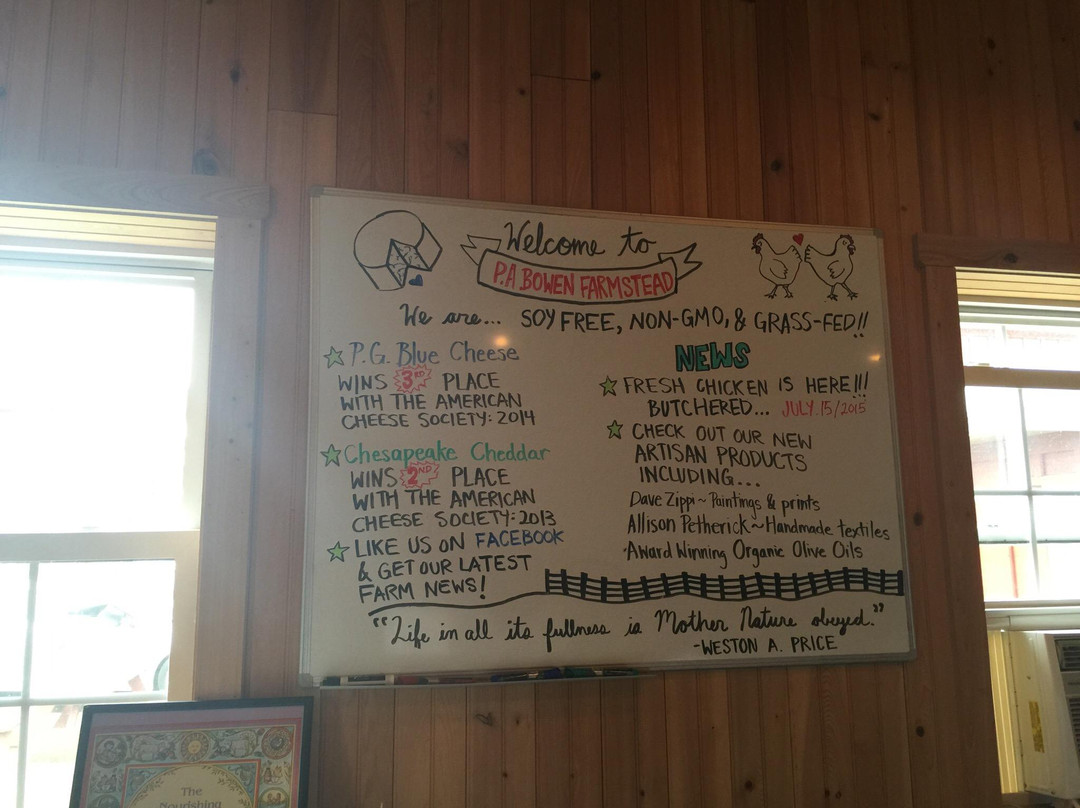 Welcome to
P.A BOWEN FARMSTEAD
We are... SOY FREE, NON-GMO, & GRASS-FED!!
P.G. Blue Cheese
WINS 3RD PLACE
WITH THE AMERICAN
CHEESE SOCIETY: 2014
Chesapeake Cheddar
WINS 2ND PLACE
WITH THE AMERICAN
CHEESE SOCIETY: 2013
LIKE US ON FACEBOOK
& GET OUR LATEST
FARM NEWS!
NEWS
FRESH CHICKEN IS HERE!!!
BUTCHERED... JULY.15/2015
CHECK OUT OUR NEW
ARTISAN PRODUCTS
INCLUDING...
Dave Zippi ~ Paintings & prints
Allison Petherick ~ Handmade textiles
·Award Winning Organic Olive Oils
"Life in all its fullness is Mother Nature obeyed."
-WESTON A. PRICE
The
Nourishing